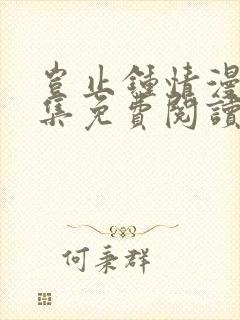 豈止鍾情漫
集免費閱讀
何秉群